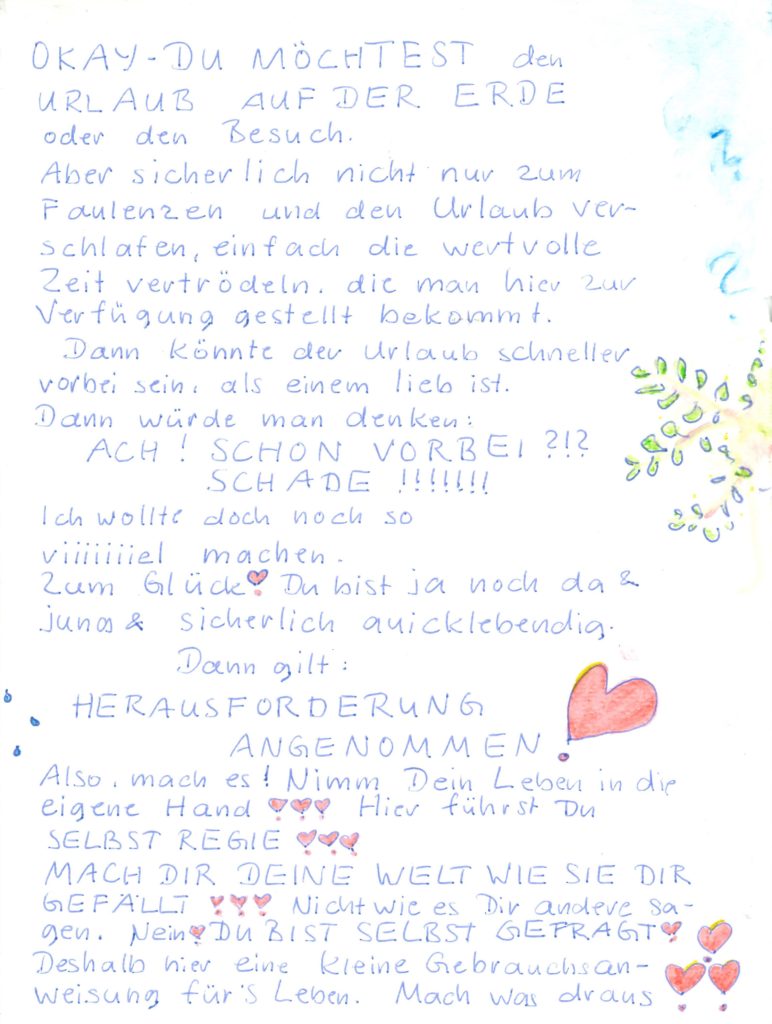 OKAY-DU MÖCHTEST den
URLAUB AUF DER ERDE
oder den Besuch.
Aber sicherlich nicht nur zum
Faulenzen und den Urlaub ver-
schlafen, einfach die wertvolle
Zeit vertrödeln, die man hier zur
Verfügung gestellt bekommt.
Dann könnte der Urlaub schneller
vorbei sein, als einem lieb ist.
Dann würde man denken:
ACH! SCHON VORBEI ?!?
SCHADE !!!!!!!
Ich wollte doch noch so
viiiiiiiel machen.
Zum Glück! Du bist ja noch da &
jung & sicherlich quicklebendig.
Dann gilt:
HERAUSFORDERUNG
ANGENOMMEN!
Also, mach es! Nimm Dein Leben in die
eigene Hand !!! Hier führst Du
SELBST REGIE !!!
MACH DIR DEINE WELT WIE SIE DIR
GEFÄLLT !!! Nicht wie es Dir andere sa-
gen. Nein! DU BIST SELBST GEFRAGT!
Deshalb hier eine kleine Gebrauchsan-
weisung für's Leben. Mach was draus !!!